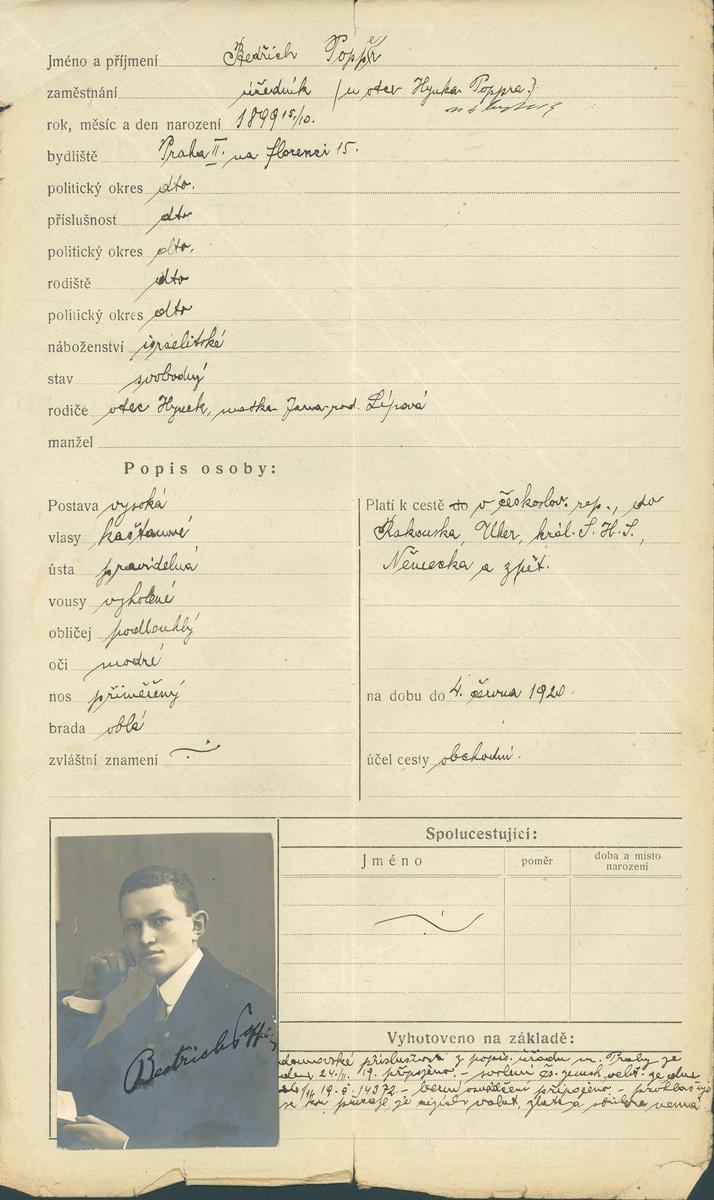 Jméno a příjmení Bedřich Popper
zaměstnání úředník (u otce Hynka Poppra.)
rok, měsíc a den narození 1899 15/10.
bydliště Praha II. na Florenci 15.
politický okres dto.
příslušnost dto
politický okres dto.
rodiště dto
politický okres dto
náboženství israelitské
stav svobodný
rodiče otec Hynek, matka rod. Lípová
manžel
Popis osoby:
Postava vysoká
vlasy kaštanové
ústa pravidelná
vousy vyholené
obličej podlouhlý
oči modré
nos přiměřený
brada oblá
zvláštní znamení
Platí k cestě do v českoslov. rep., do
Rakouska, Uher, král. S. H. S.,
Německa a zpět.
na dobu do 4. června 1920.
účel cesty obchodní.
Spolucestující:
Jméno
poměr
doba a místo
narození
Vyhotoveno na základě:
domovské příslušnosti z popis. úřadu m. Prahy ze
24./II. 19. připojeno. – svolení čs. zemsk. velit. ze dne
19. 14372 – bern. osvědčení připojeno – prohlašuje
že valut, zlata a stříbra nemá.
Bedřich Popper